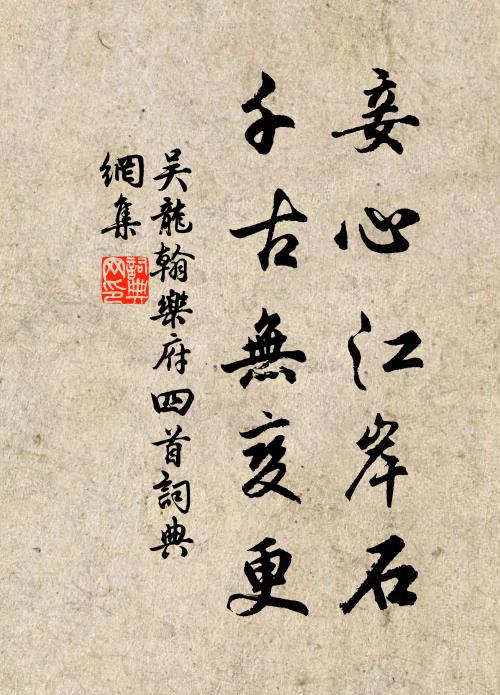 妾心江岸石
千古無变更
吴龍翰樂府四首詞典
網集
詞典
网印